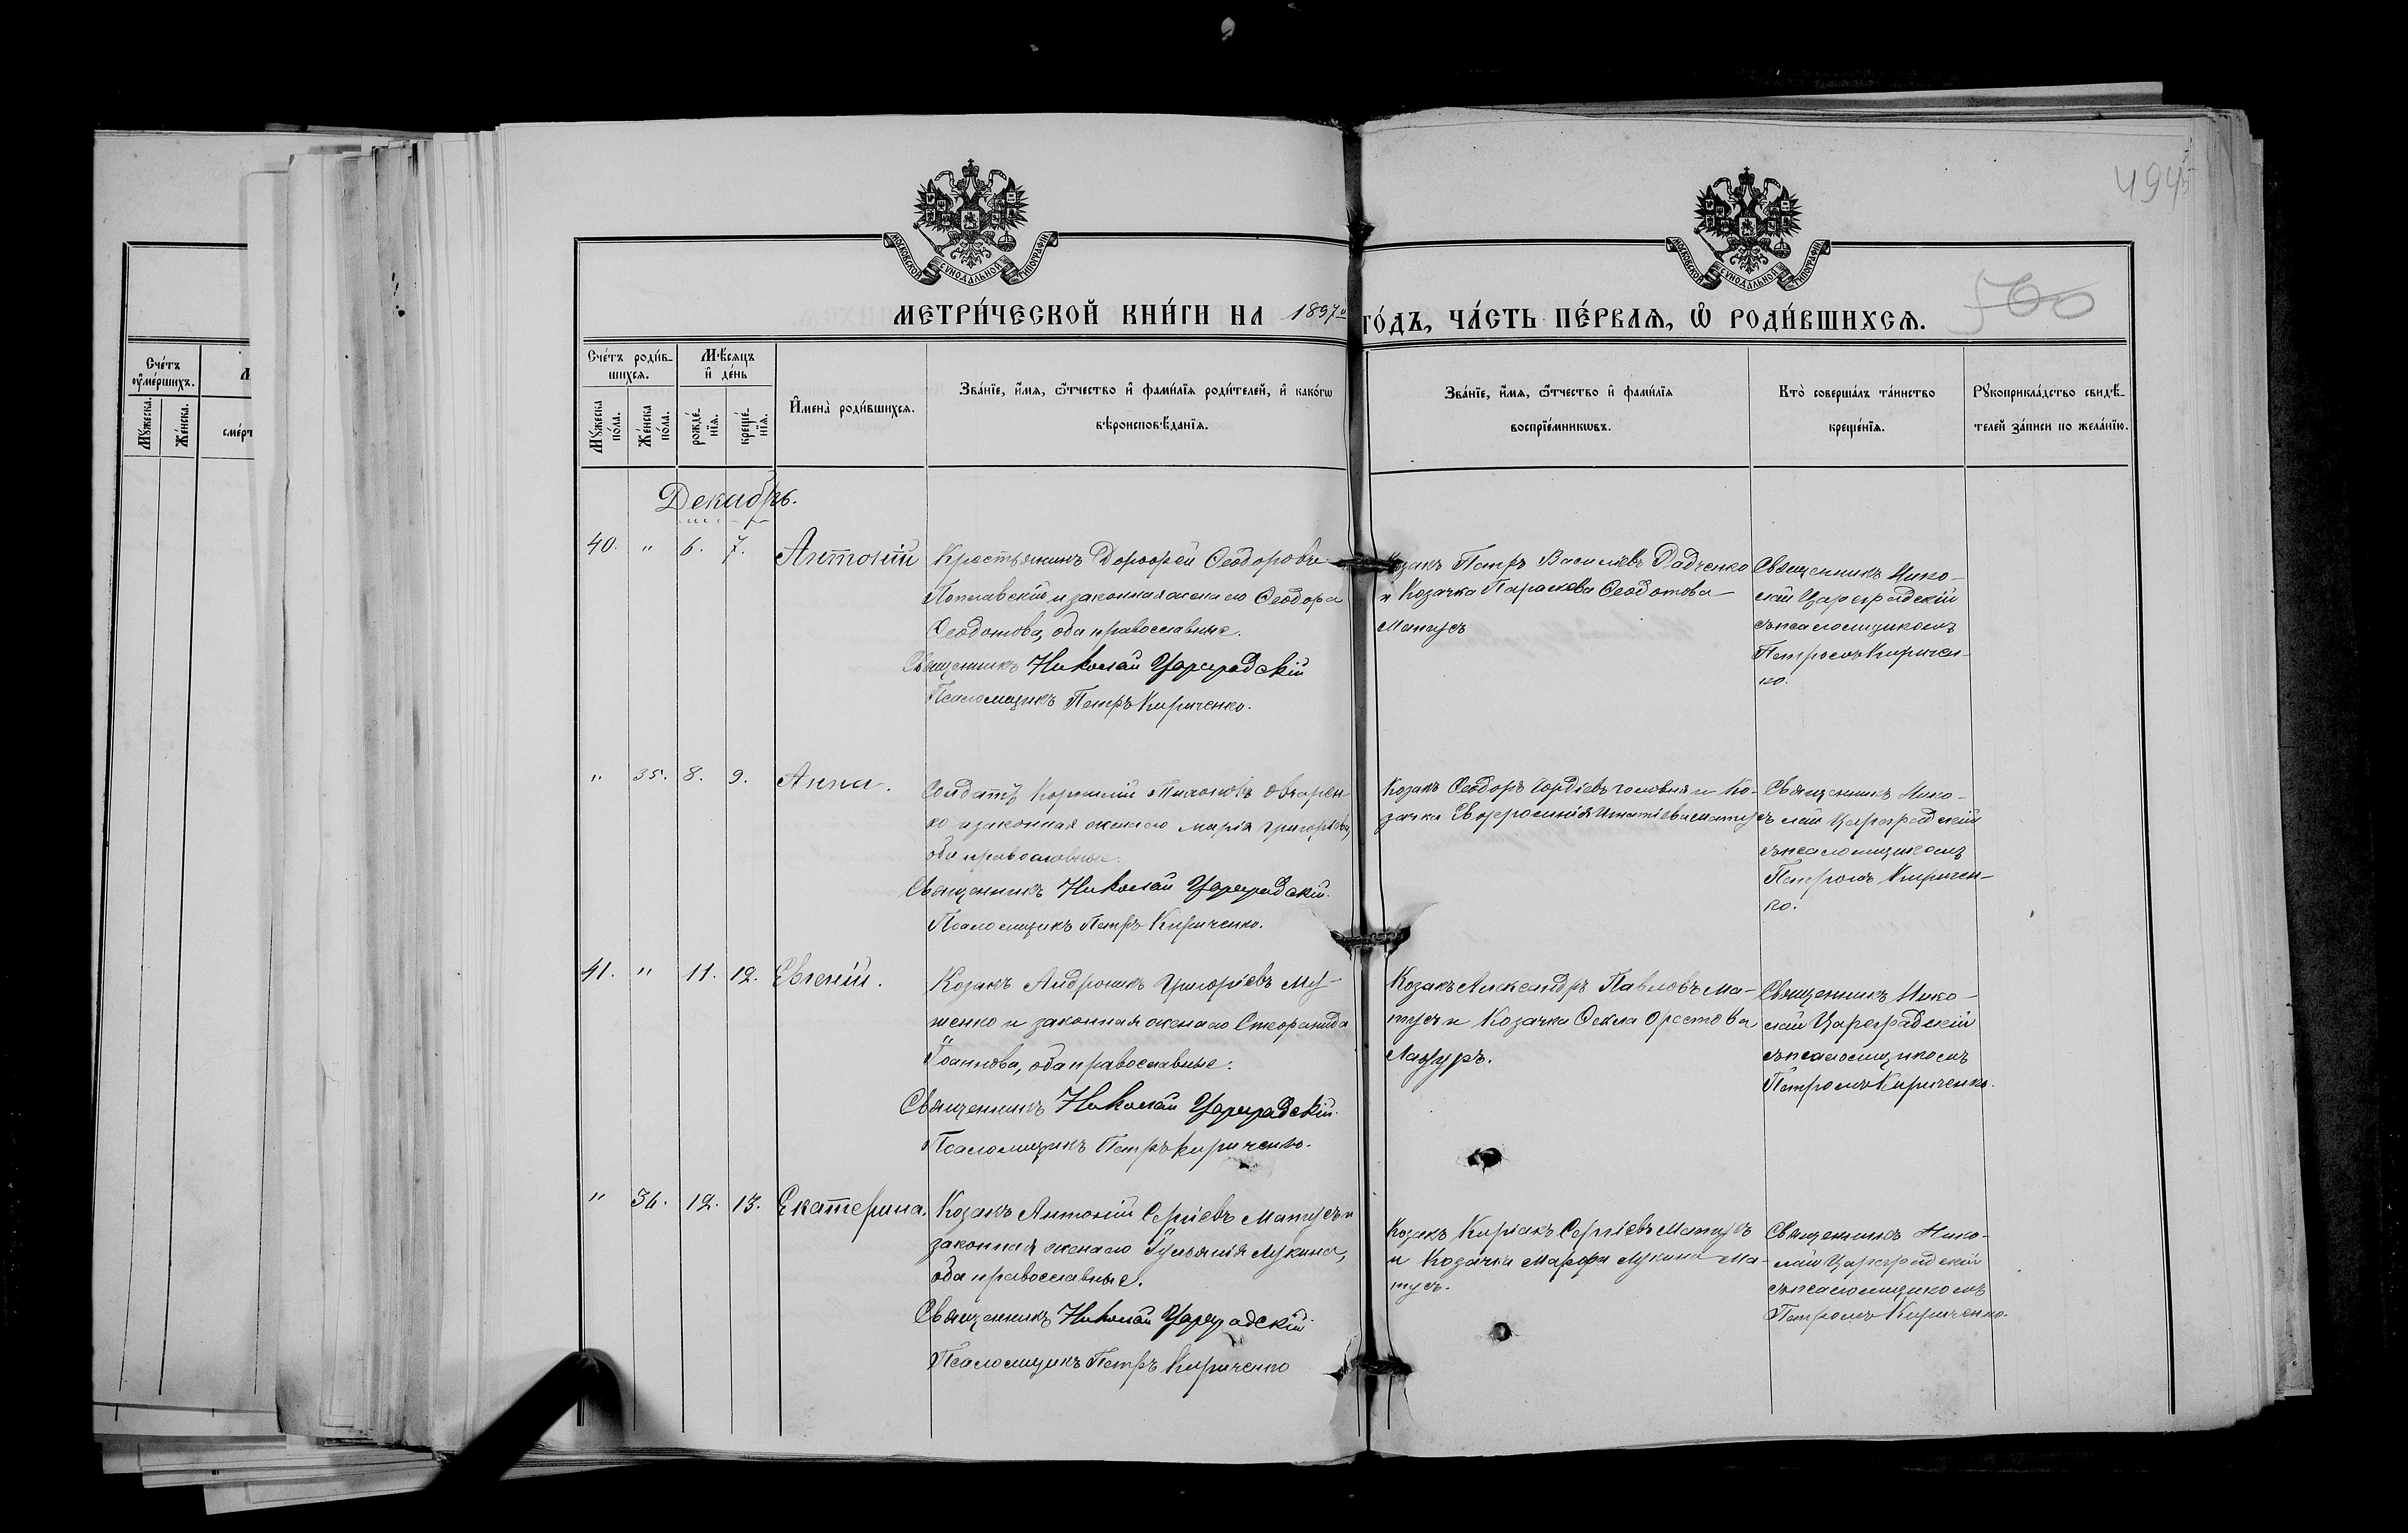 494
500
МОСКОВСКОЙ СѴНОДАЛЬНОЙ ТИПОГРАФІИ
МОСКОВСКОЙ СѴНОДАЛЬНОЙ ТИПОГРАФІИ
МЕТРИ́ЧЕСКОЙ КНИ́ГИ НА 1897й ГО́ДЪ, ЧА́СТЬ ПЕ́РВАЯ, Ѡ҆ РОДИ́ВШИХСЯ.
Сче́тъ
оу҆ме́ршихъ.
Мꙋ́жеска.
Же́нска.
сме́рт
Сче́тъ роди́в-
шихся.
Мꙋ́жеска
по́ла.
Же́нска
по́ла.
Мѣ́сяцъ
и҆ де́нь
рожде́-
нїя.
креще́-
нїя.
И҆мена̀ роди́вшихся.
Зва́нїе, и҆́мя, ѻ҆́тчество и҆ фами́лїя роди́телей, и҆ како́гѡ
вѣроисповѣ́данїя.
Зва́нїе, и҆́мя, ѻ҆́тчество и҆ фами́лїя
воспрїе́мникѡвъ.
Кто̀ соверша́лъ та́инство
креще́нїя.
Рꙋкоприкла́дство свидѣ́-
телей за́писи по жела́нїю.
Декабрь.
40. " 6. 7. Антоній
Крестьянинъ Дорофей Ѳеодоровъ
Поплавскій и законная жена его Ѳеодора
Ѳеодотова, оба православные.
Священникъ Николай Цареградскій
Псаломщикъ Петръ Кириченко.
Козакъ Петръ Васильевъ Радченко
и Козачка Параскева Ѳеодотова
Матусъ
Священникъ Нико-
лай Цареградскій
съ псаломщикомъ
Петромъ Киричен-
ко.
" 35. 8. 9. Анна.
Солдатъ Корнилій Овчарен-
ко и законная жена его Марія Григорьева,
оба православные.
Священникъ Николай Цареградскій.
Псаломщикъ Петръ Кириченко.
Козакъ Ѳеодоръ Гордіевъ Головня и Ко-
зачка Евфросинія Игнатіева Матусъ
Священникъ Нико-
лай Цареградскій
съ псаломщикомъ
Петромъ Киричен-
ко.
41. " 11. 12. Евгеній.
Козакъ Андроникъ Григоріевъ Му-
женко и законная жена его Стефанида
Іоаннова, оба православные.
Священникъ Николай Цареградскій.
Псаломщикъ Петръ Кириченко.
Козакъ Александръ Павловъ Ма-
тусъ и Козачка Ѳекла Орестова
Мазуръ.
Священникъ Нико-
лай Цареградскій
съ псаломщикомъ
Петромъ Кириченко.
" 36. 12. 13. Екатерина.
Козакъ Антоній Сергіевъ Матусъ и
законная жена его Іуліанія Лукина,
оба православные.
Священникъ Николай Цареградскій
Псаломщикъ Петръ Кириченко
Козакъ Киріакъ Сергіевъ Матусъ
и Козачка Марфа Лукина Ма-
тусъ.
Священникъ Нико-
лай Цареградскій
съ псаломщикомъ
Петромъ Кириченко.